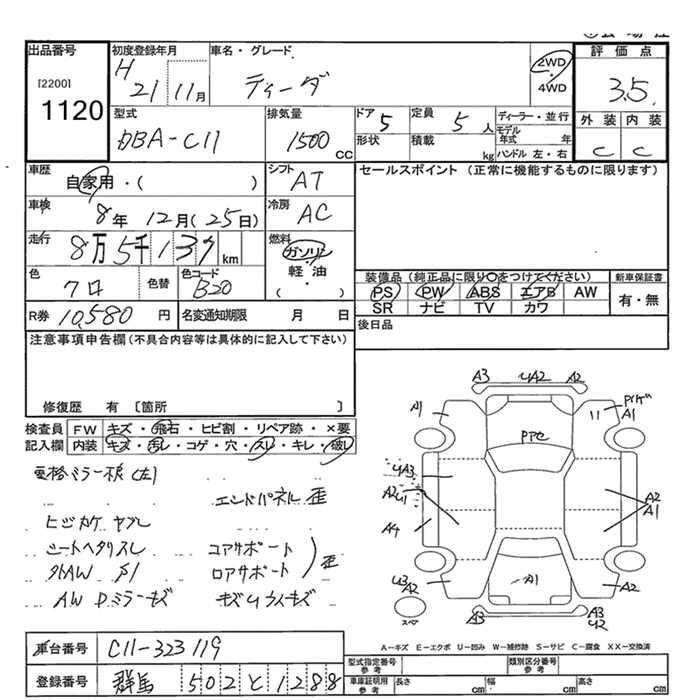 出品番号
[2200]
1120
初度登録年月
H 21 11月
車名・グレード
ティーダ
2WD
4WD
評価点
3.5
外装 内装
C C
型式
DBA-C11
排気量
1500 CC
ドア 5
形状
定員 5 人
積載 kg
ディーラー・並行
モデル年式 年
ハンドル 左・右
車歴
自家用・( )
シフト
AT
セールスポイント (正常に機能するものに限ります)
車検
8年 12月(25日)
冷房
AC
走行
8万5千139km
燃料
ガソリン
軽油
( )
色
クロ
色替
色コード
B20
装備品 (純正品に限り○をつけてください)
PS PW ABS エアB AW
SR ナビ TV カワ
新車保証書
有・無
R券 10,580 円
名変通知期限 月 日
後日品
注意事項申告欄(不具合内容等は具体的に記入して下さい)
修復歴 有 〔箇所 〕
検査員 FW キズ・飛石・ヒビ割・リペア跡・×要
記入欄 内装 キズ・汚レ・コゲ・穴・スレ・キレ・破レ
ミラー (左)
エンドパネル 歪
ヒジカケ ヤブレ
シートヘタリスレ
コアサポート
外AW
ロアサポート
歪
AW Dミラーキズ
キズ U ウスキズ
A3 UA2 A2
A1
A1
PPC
UA3
A2
U1
A4
A2
A1
U3
A2
A1
A2
スペア
A3
A3
U2
A－キズ E－エクボ U－凹み W－補修跡 S－サビ C－腐食 XX－交換済
車台番号 C11-323119
登録番号 群馬 502 と 1288
型式指定番号
参考
類別区分番号
参考
車庫証明用
参考
長さ cm 幅 cm 高さ cm